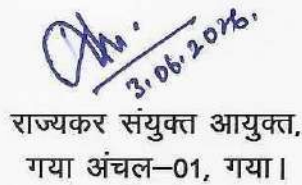 3.06.2026.
राज्यकर संयुक्त आयुक्त,
गया अंचल–01, गया।